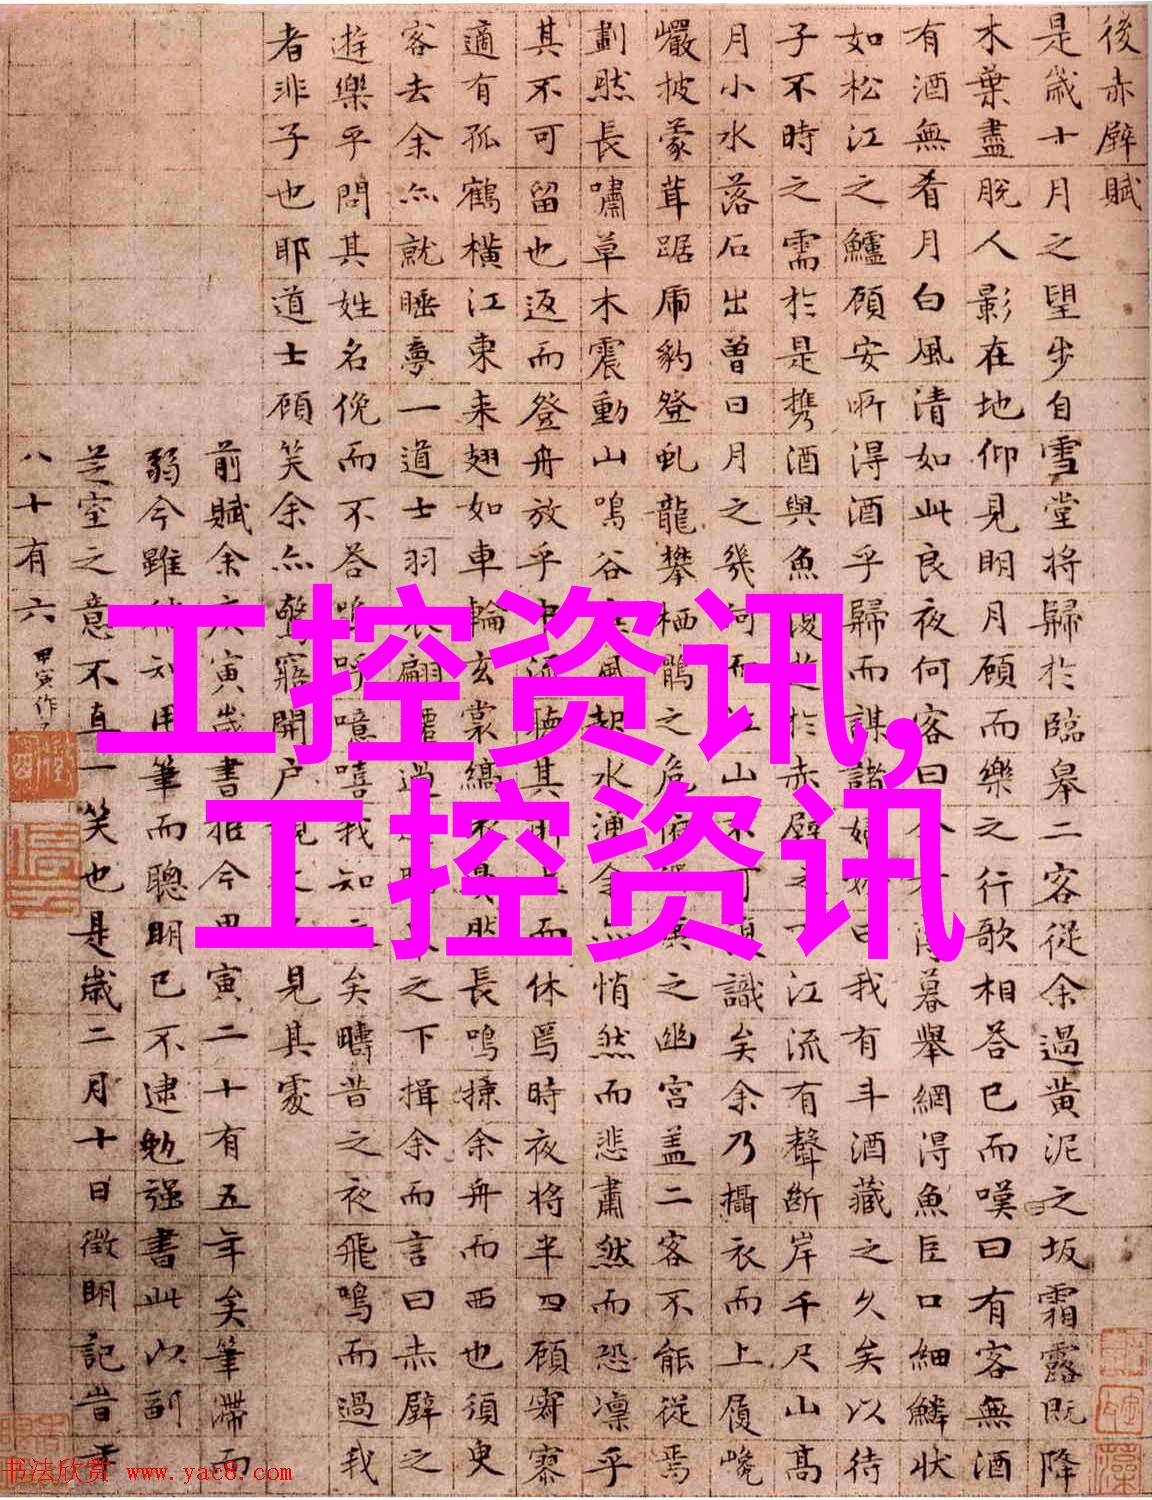 後赤壁賦
是歲十月之望步自雪堂將歸於臨皋二客從余過黃泥之坂霜露既降
木葉盡脫人影在地仰見明月顧而樂之行歌相荅已而嘆曰有客無酒
有酒無肴月白風清如此良夜何客曰今者薄暮舉網得魚巨口細鱗狀
如松江之鱸顧安所得酒乎歸而謀諸婦婦曰我有斗酒藏之久矣以待
子不時之需於是攜酒與魚復遊於赤壁之下江流有聲斷岸千尺山高
月小水落石出曾日月之幾何而江山不可復識矣余乃攝衣而上履巉
巖披蒙茸踞虎豹登虬龍攀栖鶻之危俯之幽宮盖二客不能從焉
劃然長嘯草木震動山鳴谷風起水涌余亦悄然而悲肅然而恐凜乎
其不可留也返而登舟放乎中流聽其所止而休焉時夜將半四顧寂寥
適有孤鶴橫江東来翅如車輪玄裳縞衣戛然長鳴掠余舟而西也須臾
客去余亦就睡夢一道士羽衣翩躚過之下揖余而言曰赤壁之
遊樂乎問其姓名俛而不荅嗚呼噫嘻我知之矣疇昔之夜飛鳴而過我
者非子也耶道士顧笑余亦驚寤開户視之見其處
前賦余寅歲書抵今甲寅二十有五年矣筆滯而
弱今雖知用筆而聰明已不逮勉强書此以副
芝室之意不直一笑也是歲二月十日徵明記昔年
八十有六
甲寅作
工控资讯,
工控资讯
书法欣赏 www.yac8.com